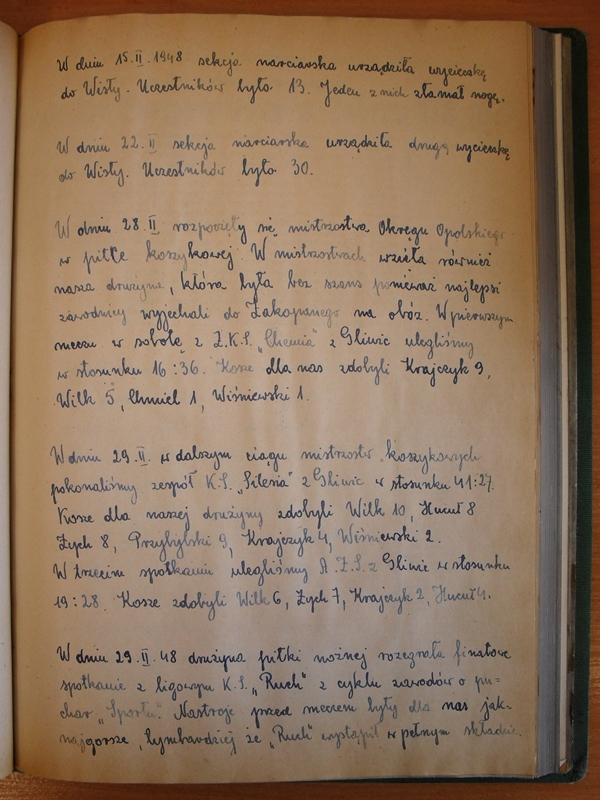 W dniu 15.II.1948 sekcja narciarska urządziła wycieczkę
do Wisły. Uczestników było 13. Jeden z nich złamał nogę.
W dniu 22.II sekcja narciarska urządziła drugą wycieczkę
do Wisły. Uczestników było 30.
W dniu 28.II rozpoczęły się mistrzostwa Okręgu Opolskiego
w piłce koszykowej. W mistrzostwach wzięła również
nasza drużyna, która była bez szans ponieważ najlepsi
zawodnicy wyjechali do Zakopanego na obóz. W pierwszym
meczu w sobotę z Z.K.S. „Chemia" z Gliwic ulegliśmy
w stosunku 16:36. Kosze dla nas zdobyli Krajczyk 9,
Wilk 5, Chmiel 1, Wiśniewski 1.
W dniu 29.II. w dalszym ciągu mistrzostw koszykowych
pokonaliśmy zespół K.S. „Silesia" z Gliwic w stosunku 41:27.
Kosze dla naszej drużyny zdobyli Wilk 10, Hucuł 8
Zych 8, Przybylski 9, Krajczyk 4, Wiśniewski 2.
W trzecim spotkaniu ulegliśmy A.Z.S. z Gliwic w stosunku
19:28. Kosze zdobyli Wilk 6, Zych 7, Krajczyk 2, Hucuł 4.
W dniu 29.II.48 drużyna piłki nożnej rozegrała finałowe
spotkanie z ligowym K.S. „Ruch" z cyklu zawodów o pu-
char „Sportu". Nastroje przed meczem były dla nas jak-
najgorsze, bymbardziej że „Ruch" wystąpił w pełnym składzie.